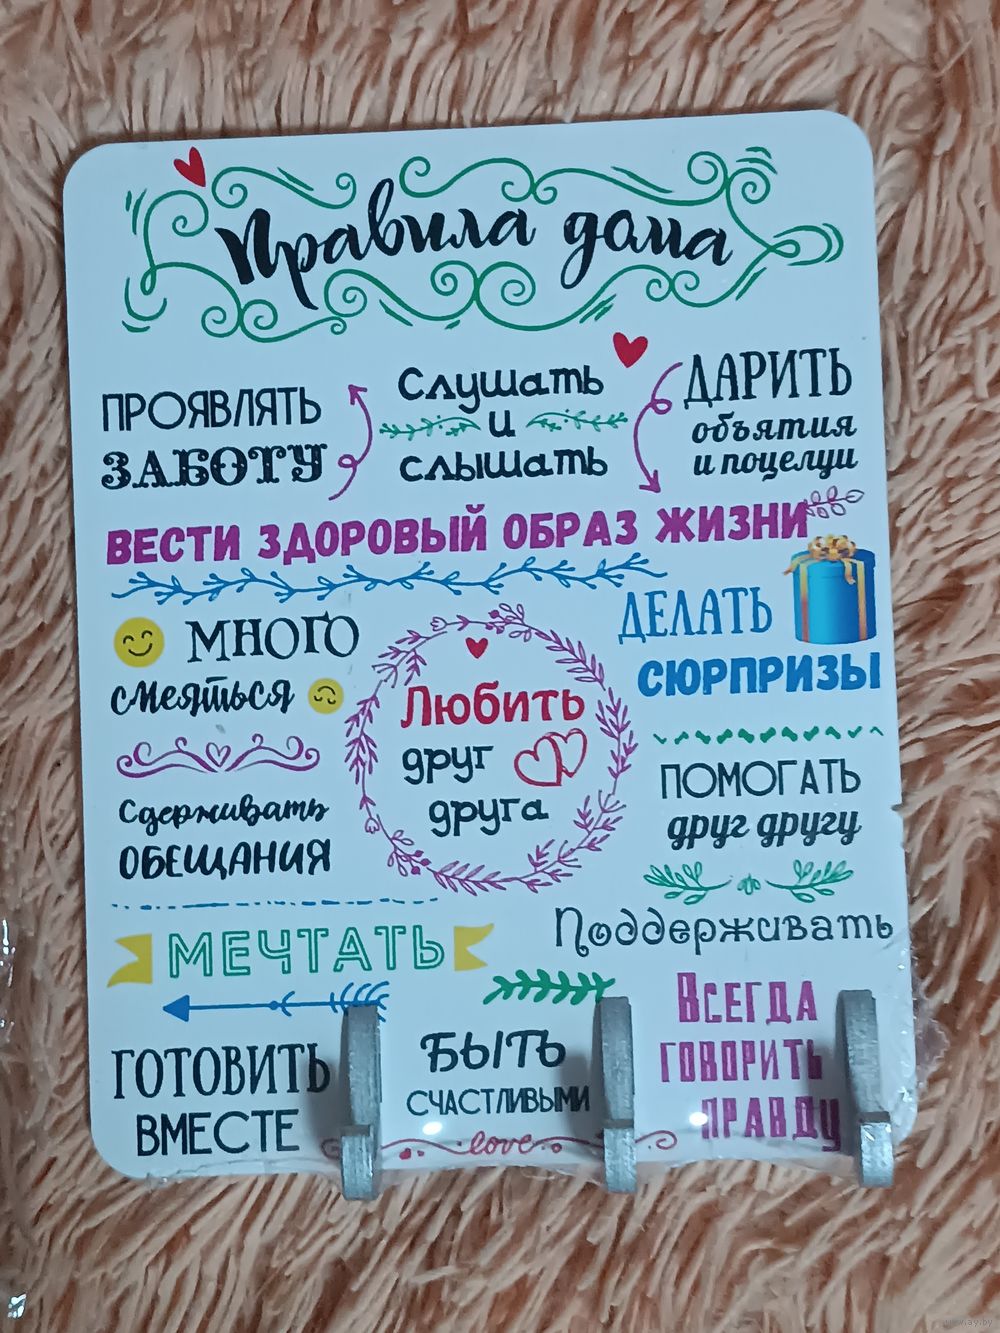 Правила дома
ПРОЯВЛЯТЬ
ЗАБОТУ
Слушать
и
слышать
ДАРИТЬ
объятия
и поцелуи
ВЕСТИ ЗДОРОВЫЙ ОБРАЗ ЖИЗНИ
МНОГО
смеяться
ДЕЛАТЬ
СЮРПРИЗЫ
Любить
друг
друга
Сдерживать
ОБЕЩАНИЯ
ПОМОГАТЬ
друг другу
МЕЧТАТЬ
Поддерживать
ГОТОВИТЬ
ВМЕСТЕ
БЫТЬ
СЧАСТЛИВЫМИ
ВСЕГДА
ГОВОРИТЬ
ПРАВДУ
love
www.ay.by